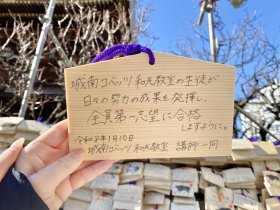 城南コベッツ 和光教室の生徒が
日々の努力の成果を発揮し、
全員第一志望に合格
しますように。
令和8年1月10日
城南コベッツ 和光教室 講師一同